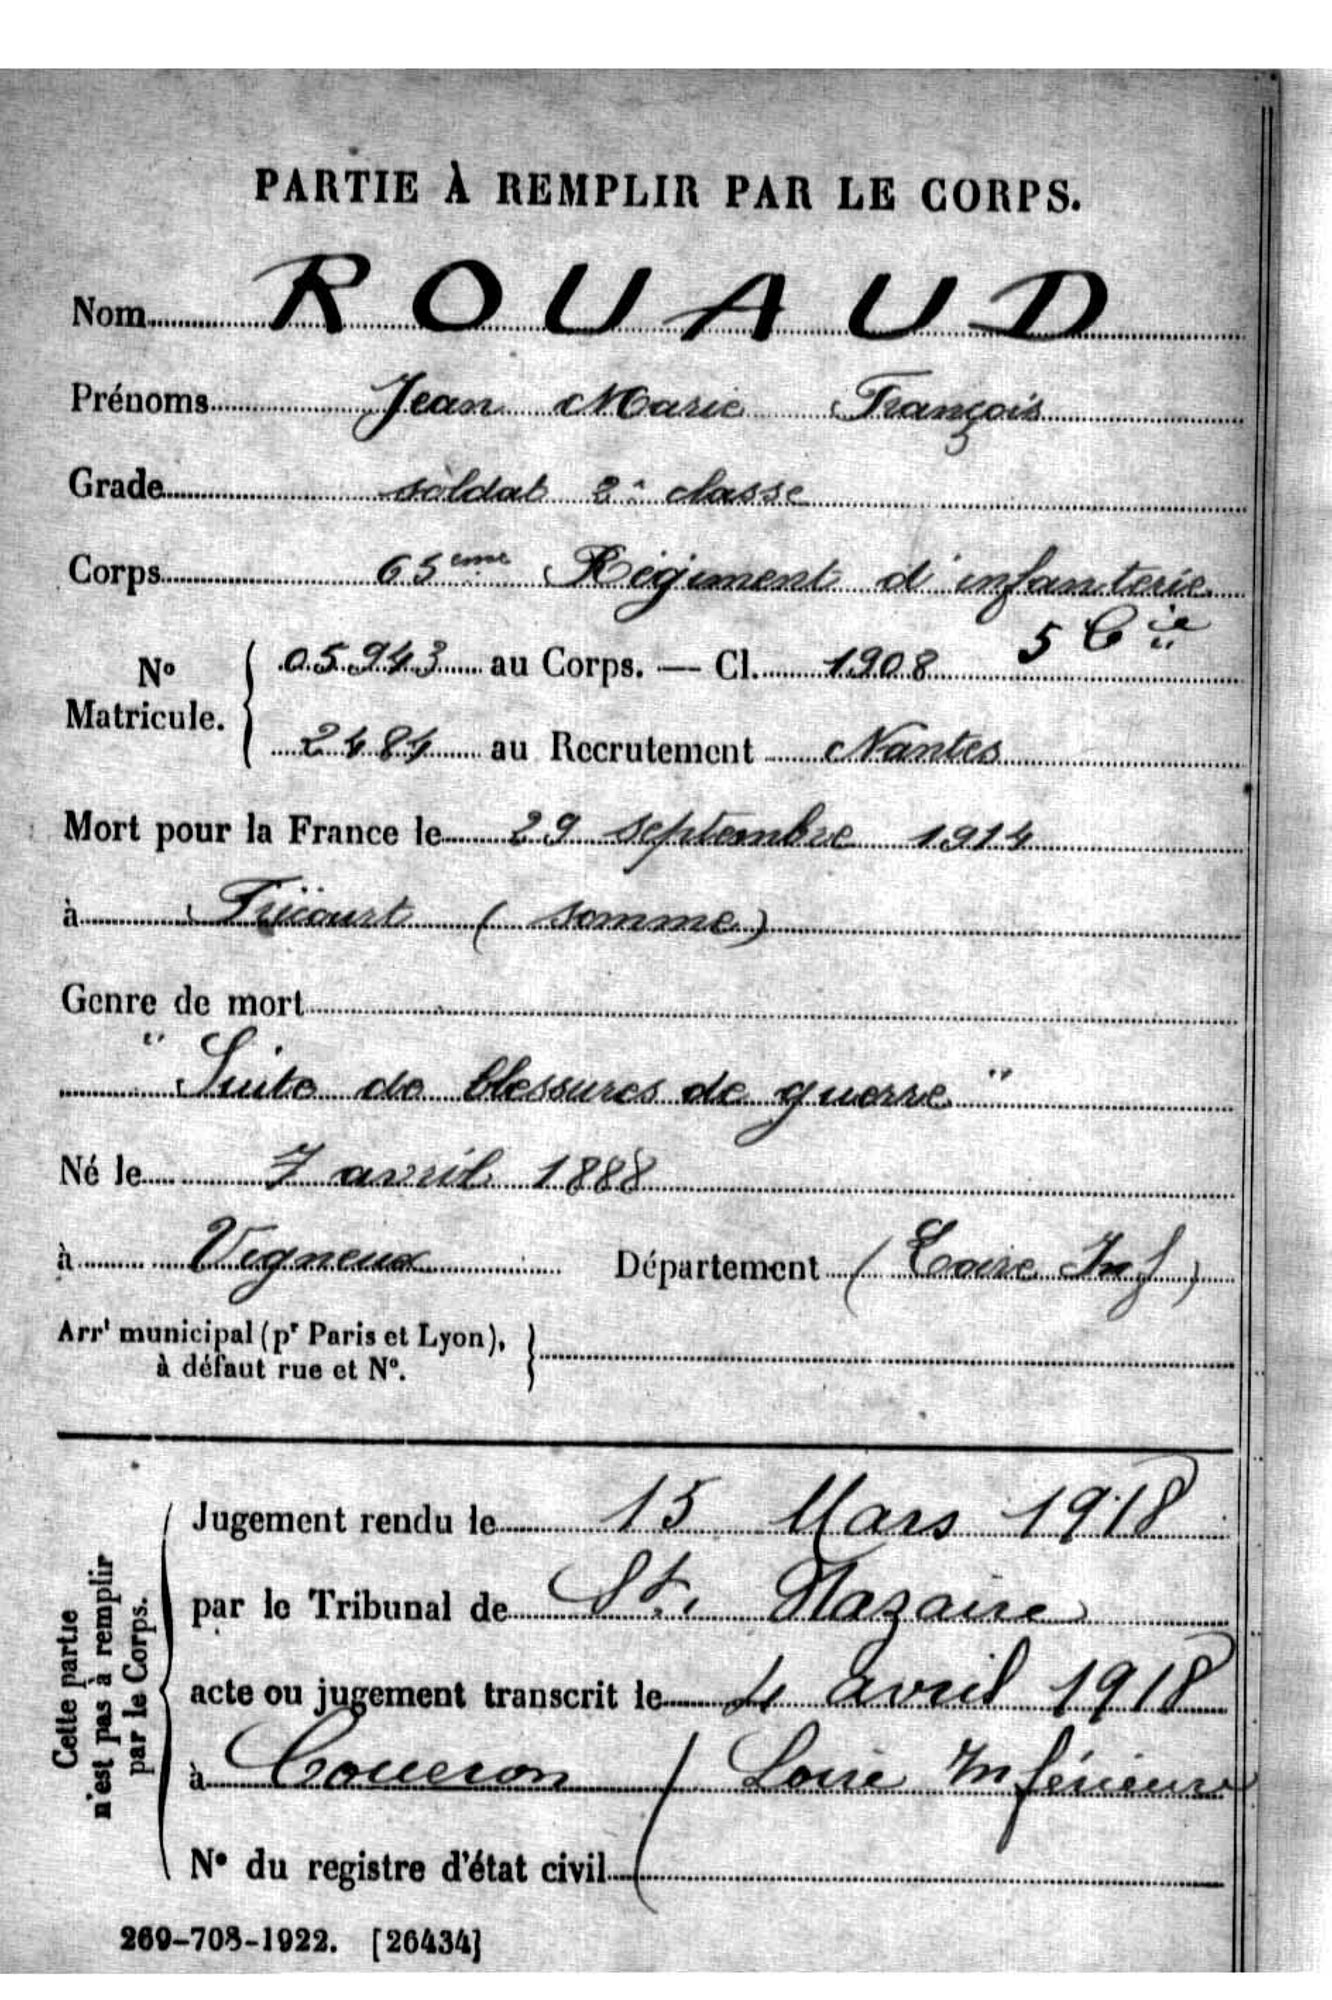 PARTIE À REMPLIR PAR LE CORPS.
Nom ROUAUD
Prénoms Jean Marie François
Grade soldat 2e classe
Corps 65eme Régiment d'infanterie
5 Cie
No Matricule. { 05943 au Corps. — Cl. 1908
2484 au Recrutement Nantes
Mort pour la France le 29 septembre 1914
à Fricourt ( Somme )
Genre de mort
" Suite de blessures de guerre "
Né le 7 avril 1888
à Vigneux Département ( Loire Inf )
Arrt municipal (pr Paris et Lyon), à défaut rue et No. }
Cette partie n'est pas à remplir par le Corps.
Jugement rendu le 15 Mars 1918
par le Tribunal de St. Nazaire
acte ou jugement transcrit le 4 avril 1918
à Coueron ( Loire Inférieure
No du registre d'état civil
269-708-1922. [26434]